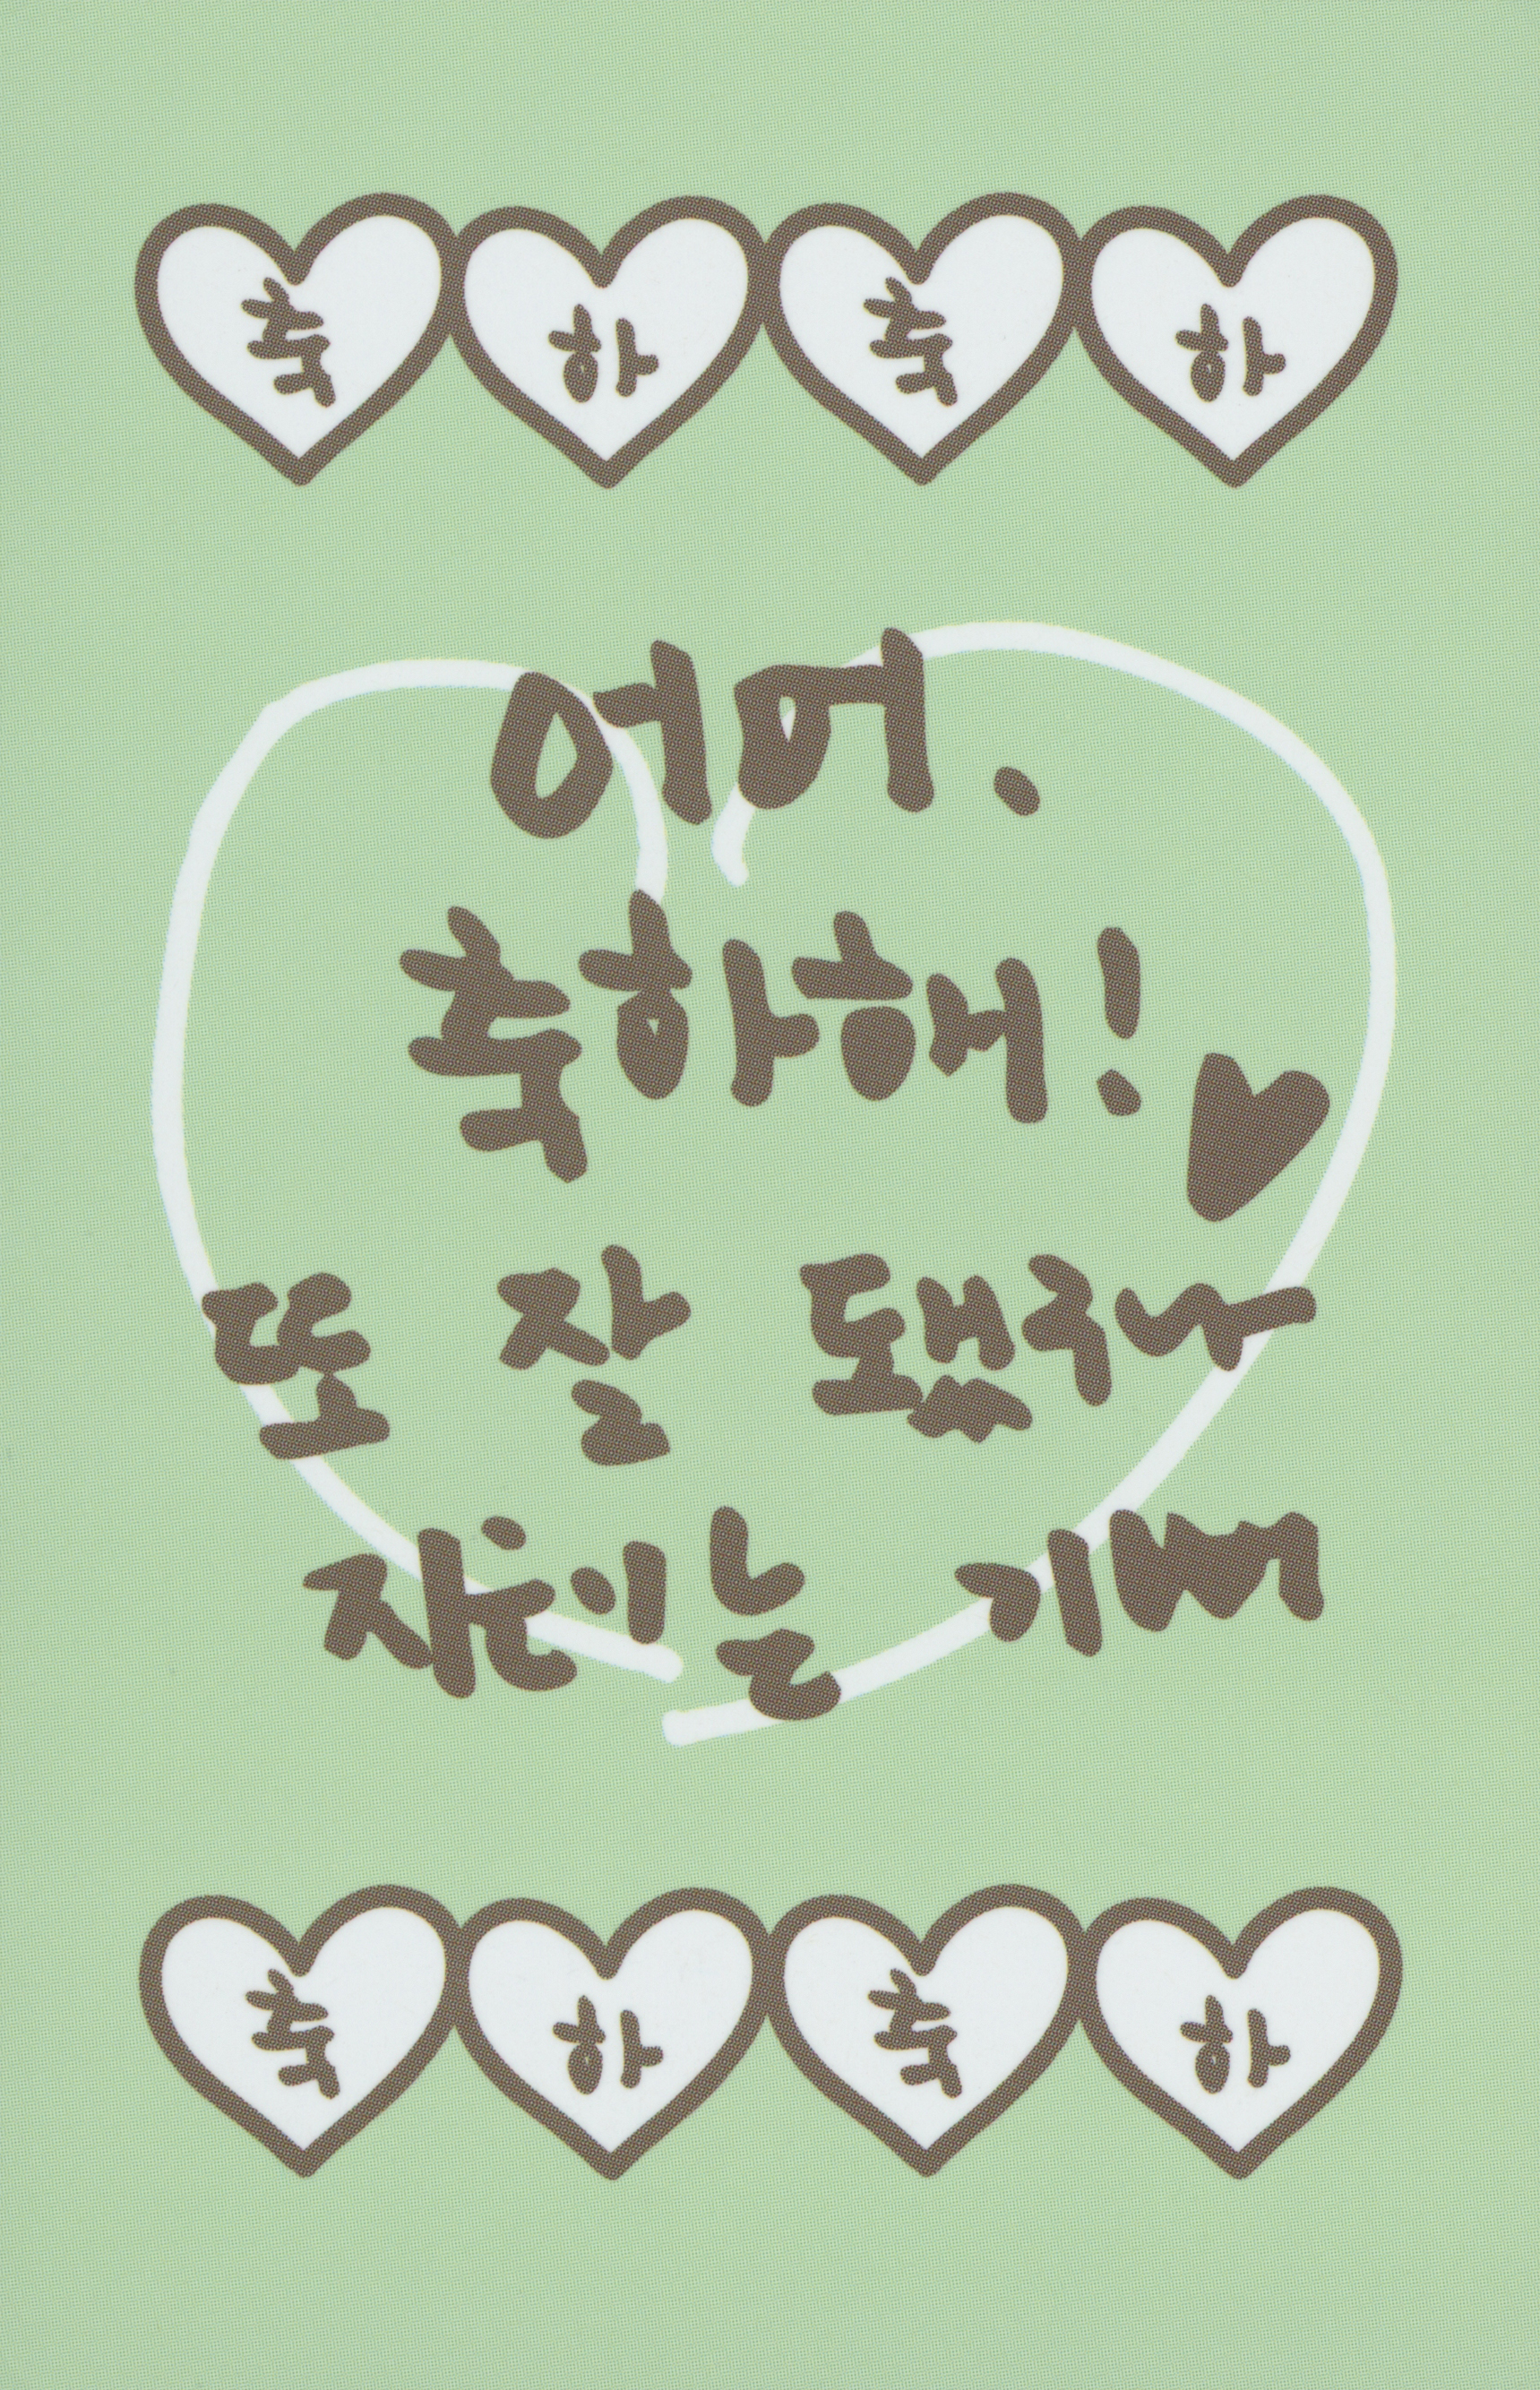 축 하 축 하
어머.
축하해!
또 잘 됐구나
자신일 기뻐
축 하 축 하